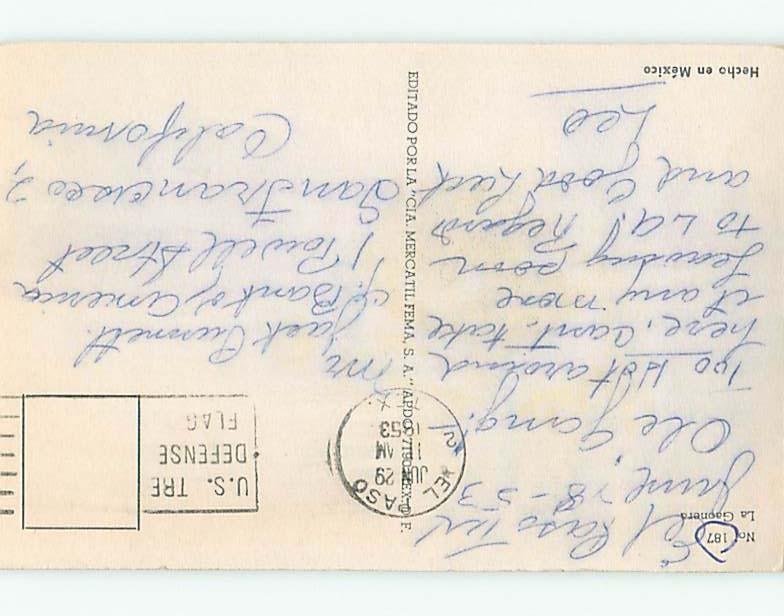 No. 187
La Gaonera
El Paso Tex
June 28-53
Ole Gang!-
Too Hot around
here, can't take
it any more
Leaving 
to LA! Regards
and Good Luck
Lee
Hecho en México
EDITADO POR LA "CIA. MERCATIL FEMA, S. A." APDO. MEX. D. F.
EL PASO
JUN 29
AM
1953
U.S. TRE
DEFENSE
FLAG
Mr Jack
c/o Bank of America
1 Powell Street
San Francisco 2,
California